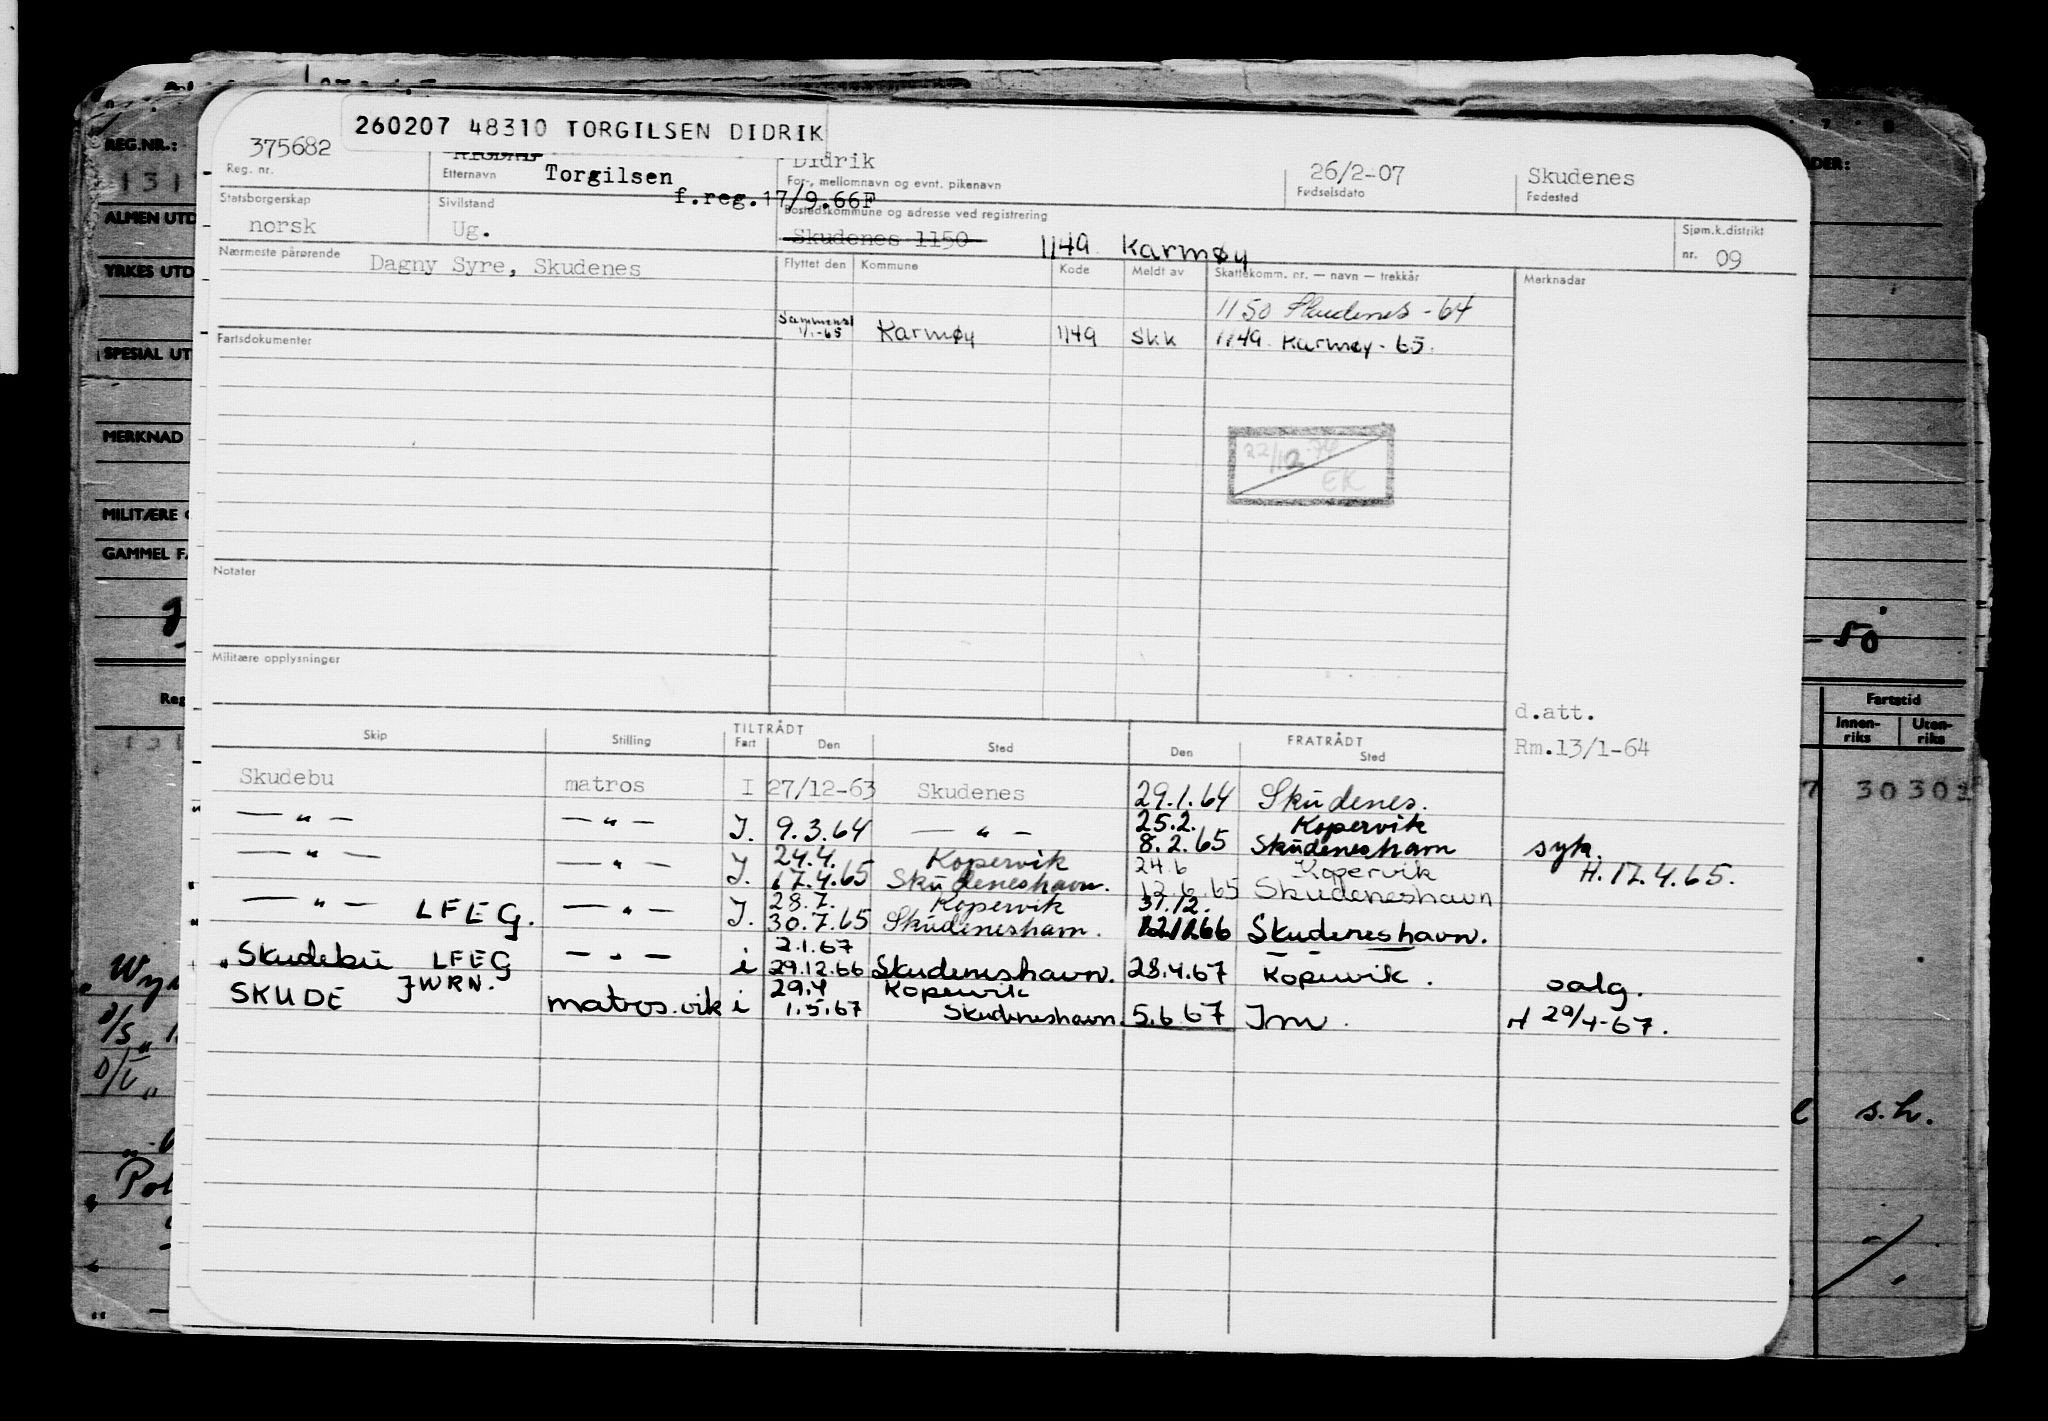 260207 48310 TORGILSEN DIDRIK
REG.NR.:
375682
Reg. nr.
Etternavn
Torgilsen
f.reg.17/9.66F
Didrik
For-, mellomnavn og evnt. pikenavn
26/2-07
Fødselsdato
Skudenes
Fødested
Statsborgerskap
norsk
Sivilstand
Ug.
Bostedskommune og adresse ved registrering
Skudenes 1150
1149 Karmøy
Sjøm.k.distrikt
nr. 09
Nærmeste pårørende
Dagny Syre, Skudenes
Flyttet den
Kommune
Kode
Meldt av
Skattekomm. nr. — navn — trekkår
Merknader
1150 Skudenes - 64
1/1-65
Karmøy
1149
Skk
1149 Karmøy - 65.
Fartsdokumenter
22/12-74
EK
Notater
Militære opplysninger
d.att.
Rm.13/1-64
Skip
Stilling
TILTRÅDT
Fart
Den
Sted
FRATRÅDT
Den
Sted
Skudebu matros I 27/12-63 Skudenes 29.1.64 Skudenes.
— " — — " — I. 9.3.64 — " — 25.2. Kopervik
8.2.65 Skudeneshavn syk.
— " — — " — I. 24.4. Kopervik 24.6 Kopervik H. 17.4.65.
17.4.65 Skudeneshavn. 12.6.65 Skudeneshavn
— " — LFEG. — " — I. 28.7. Kopervik 31.12.
30.7.65 Skudeneshavn. Skudeneshavn.
2.1.67
Skudebu LFEG — " — i 29.12.66 Skudeneshavn. 28.4.67 Kopervik. salg.
SKUDE JWRN. matros.vik i 29.4 Kopervik
1.5.67 Skudeneshavn. 5.6.67 Im. H 29/4-67.
ALMEN UTD
YRKES UTD
SPESIAL UT
MERKNAD
MILITÆRE
GAMMEL FA
50
Fartstid
Innen-
riks
Uten-
riks
s.h.